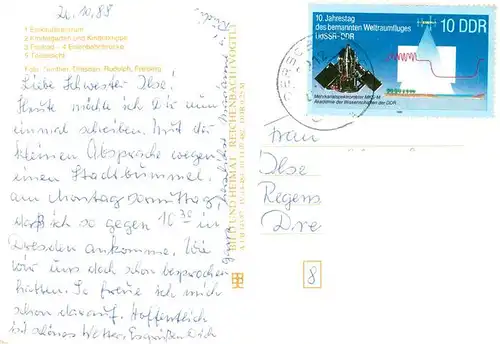 21.10.88
1 Einkaufszentrum
2 Kindergarten und Kinderkrippe
3 Freibad – 4 Eisenbahnbrücke
5 Teilansicht
Liebe Schwester Ilse!
Heute möchte ich Dir nun
einmal schreiben. Mit der
kleinen Absprache wegen
einen Stadtbummel.
am Montagvormittag,
daß ich so gegen 10 30 in
Dresden ankomme. Wie
wir uns doch schon besprochen
hatten. So freue ich mich
schon darauf. Hoffentlich
ist schönes Wetter. Es grüßen Dich
BILD UND HEIMAT REICHENBACH (VOGTL)
10. Jahrestag
des bemannten Weltraumfluges
UdSSR-DDR
10 DDR
Mehrkanalspektrometer MKS-M
Akademie der Wissenschaften der DDR
Frau
Ilse
Regens
Dre
8